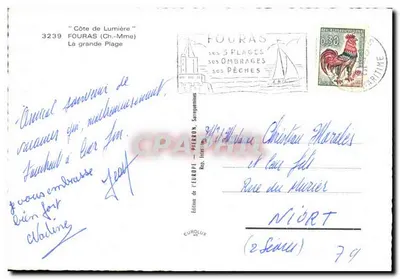 "Côte de Lumière"
3239 FOURAS (Ch.-Mme)
La grande Plage
FOURAS
SES 3 PLAGES
SES OMBRAGES
SES PÊCHES
MARITIME
Amical souvenir de
vacances qui, malheureusement,
touchent à leur fin.
je vous embrasse
bien fort
Nadine
Édition de l'EUROPE - PIERRON, Sarreguemines
EUROLUX
Christian
et leur fils
Rue du Murier
NIORT
(2 Sèvres)
79
CPARAMA.COM